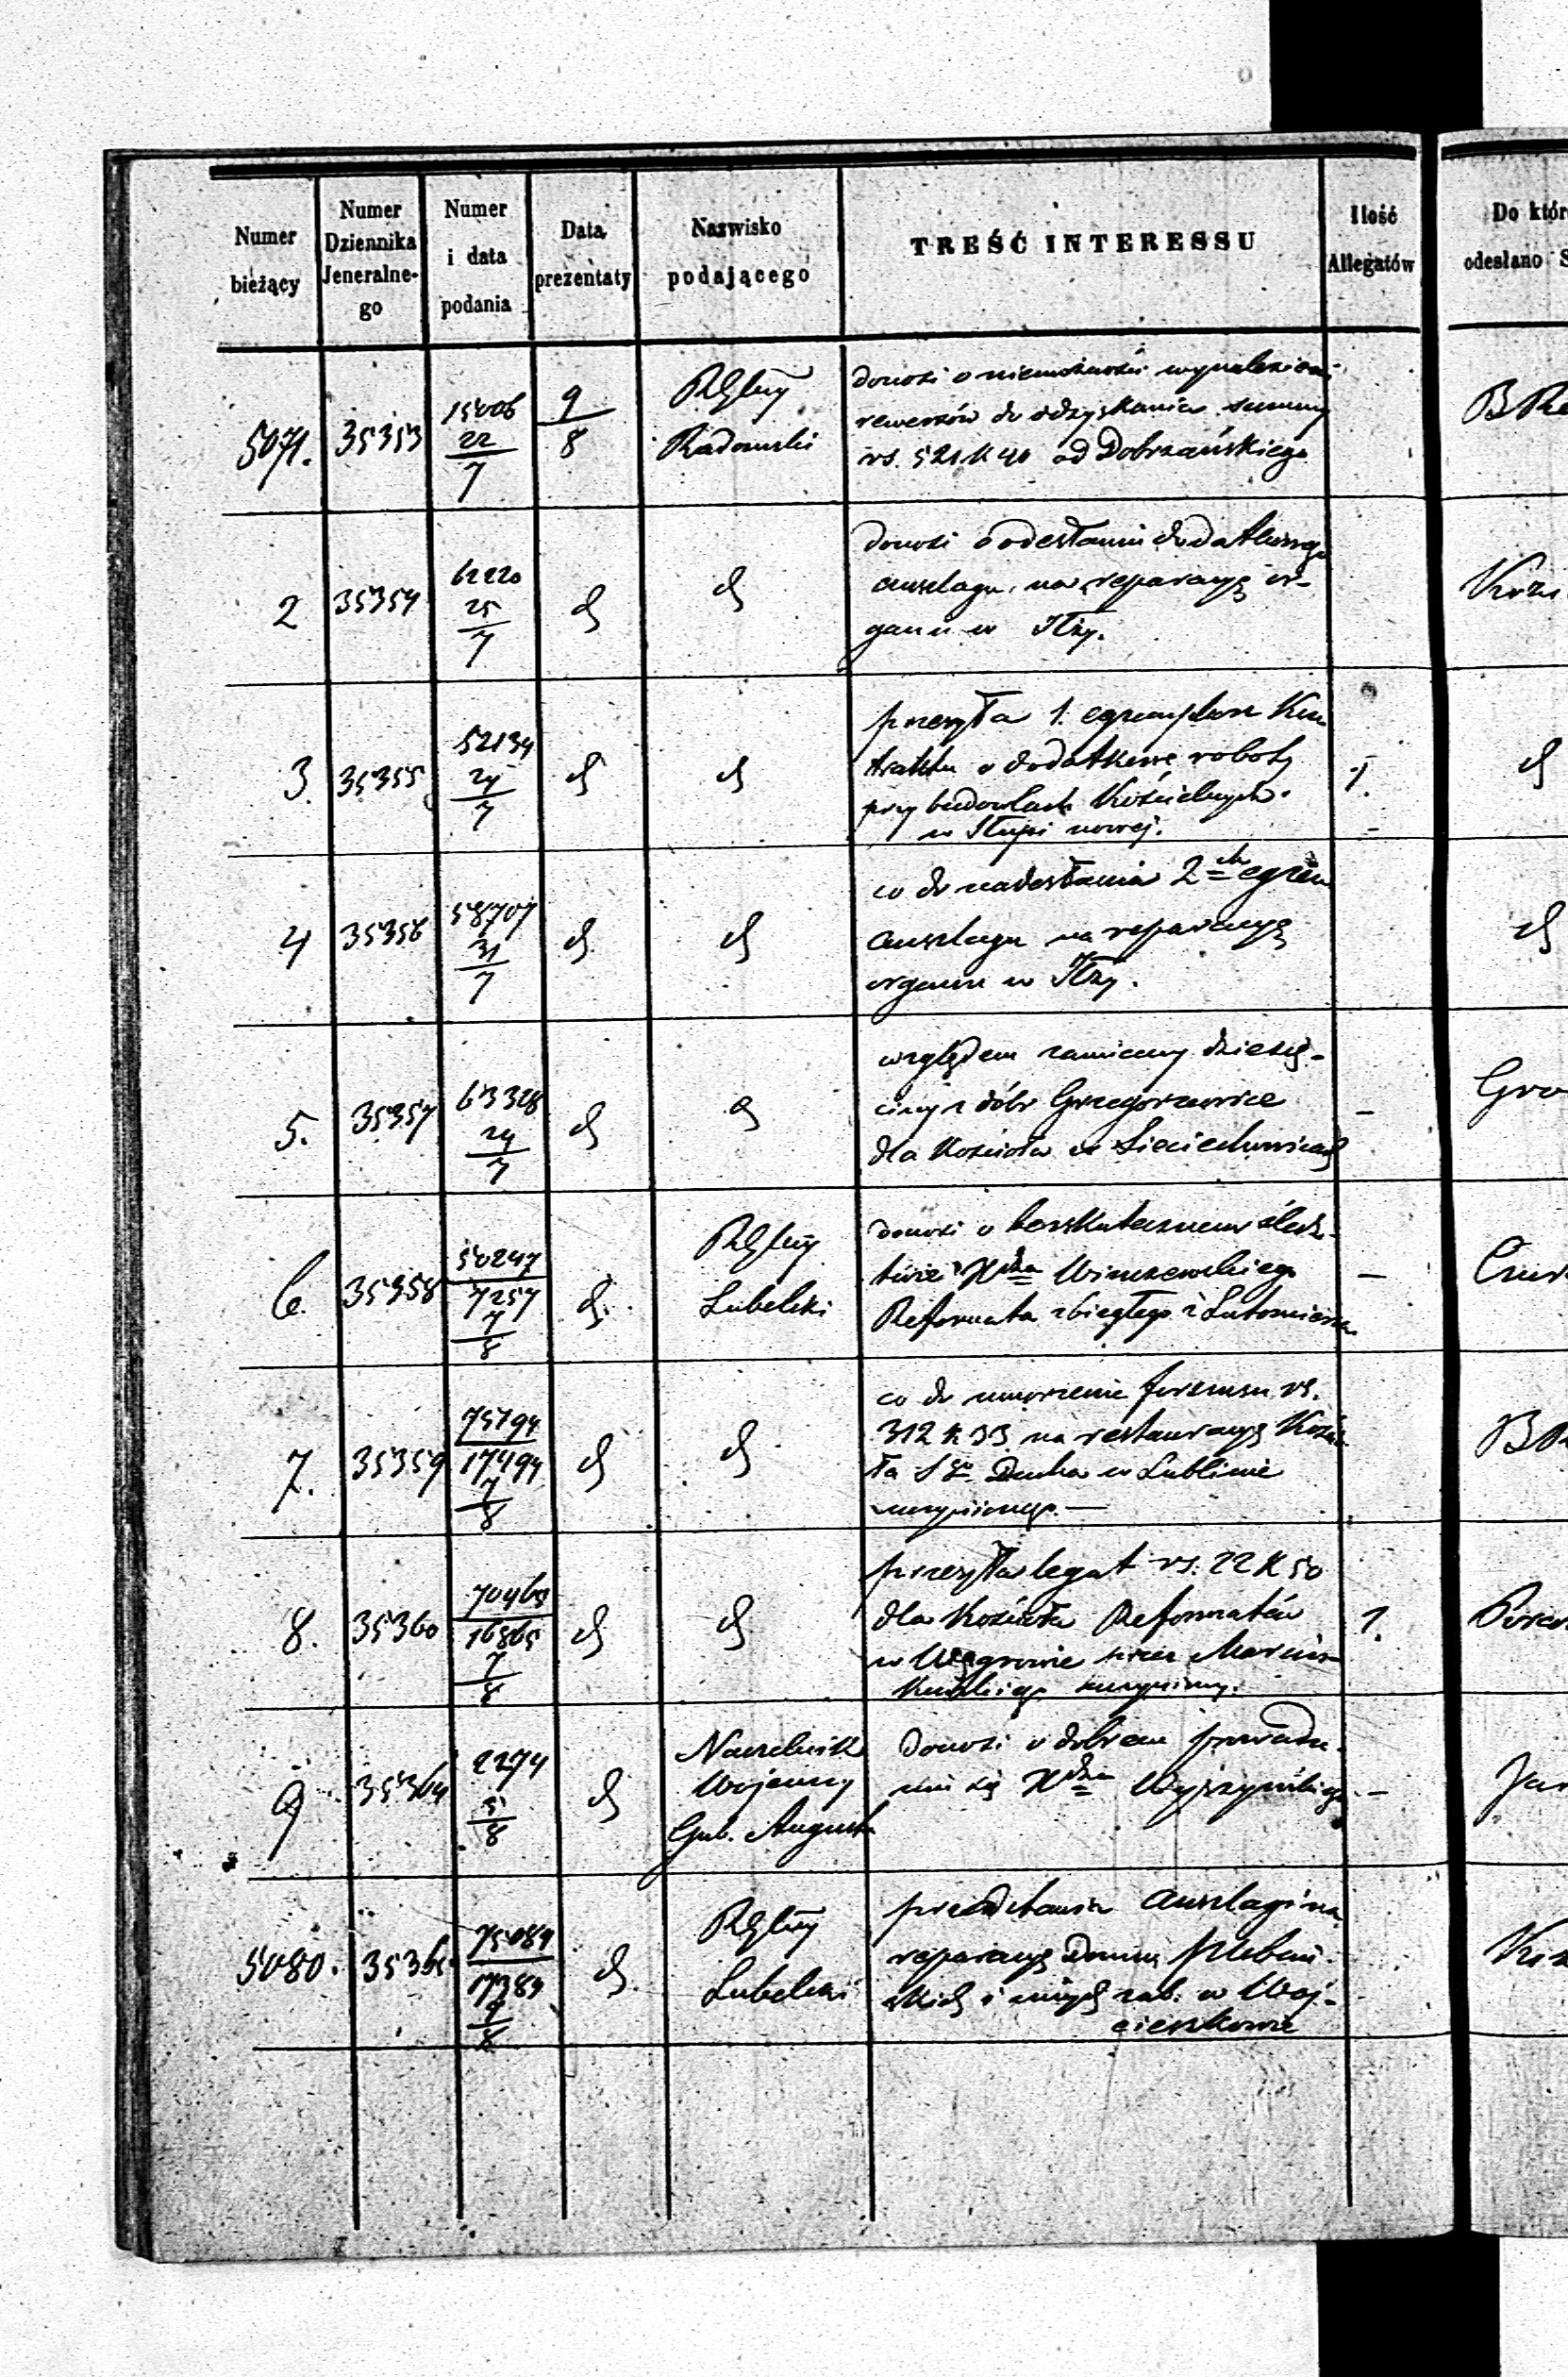 Numer bieżący
Numer Dziennika Jeneralne-go
Numer i data podania
Data prezentaty
Nazwisko podającego
TREŚĆ INTERESSU
Ilość Allegatów
Do któr
odesłano S
5071. 35353 15006 22/7 9/8 Radomski
donosi o niemożności wynalezieni
rewersów do odzyskania summy
rs. 521 k 40 od Dobrzańskiego
2 35354 61220 25/7
donosi o odesłaniu dodatkowego
anszlagu na reparacyą or-
ganu w Iłży.
3. 35355 52134 24/7
przesyła 1. egzemplarz Kon
traktu o dodatkowe roboty
przy budowlach Kościelnych
w Słupi nowej.
1.
4 35356 58707 31/7
co do nadesłania 2ch egzem
anszlagu na reparacyą
organu w Iłży.
5. 35357 63328 24/7
względem zamiany dziesię-
ciny z dóbr Grzegorzewice
dla Kościoła w Sieciechowicach
–
Gro
6. 35358 50247 7257 7/8 Lubelski
donosi o bezskutecznem śledz-
twie Xdza
Reformata zbiegłego z Lutomierska
–
7. 35359 75794 17494 7/8
co do umorzenia forszusu rs.
312 k 33 na restauracyą Kościo
ła Sgo Ducha w Lublinie
8. 35360 70465 16865 7/8
przesyła legat rs. 22 k 50
dla Kościoła Reformatów
w Węgrowie przez Marcin
1.
9 35364 2274 5/8
Naczelnik
Wojenny
Gub. August
donosi o dobrem prowadze-
niu się Xdza
–
Jan
5080. 35365 75084 17384 7/8 Lubelski
przedstawia anszlagi na
reparacyą Domu plebań-
skich i innych zab. w Woj-
cieszkowie